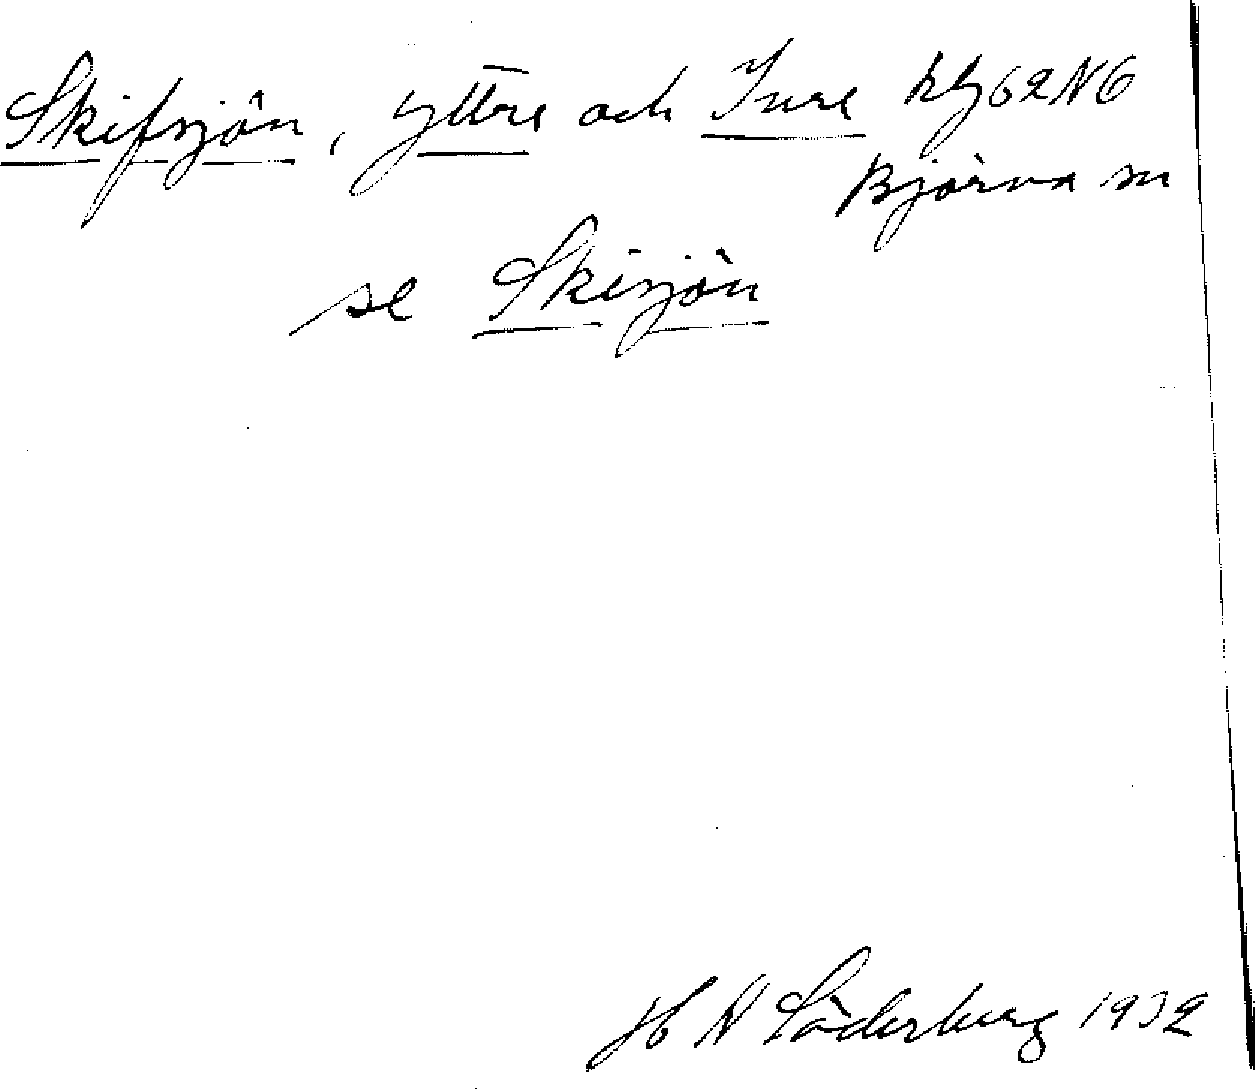 Skifsjön, Yttre och Inre kbl 62 N6
Björna sn
se Skisjön
H N Söderberg 1932